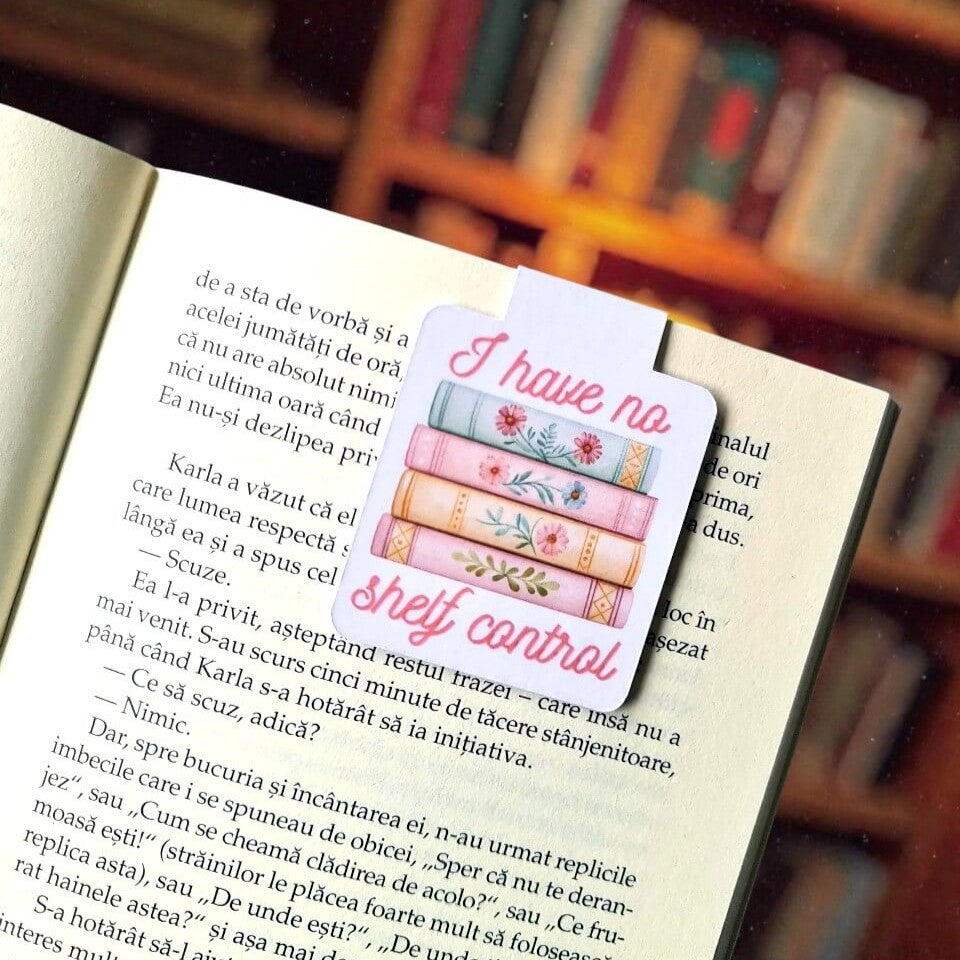 de a sta de vorbă și a
acelei jumătăți de oră,
că nu are absolut nimi
nici ultima oară când
Ea nu-și dezlipea priv
inalul
de ori
prima,
a dus.
I have no
shelf control
Karla a văzut că el
care lumea respectă s
lângă ea și a spus cel
loc în
așezat
— Scuze.
Ea l-a privit, așteptând restul frazei – care însă nu a
mai venit. S-au scurs cinci minute de tăcere stânjenitoare,
până când Karla s-a hotărât să ia inițiativa.
— Ce să scuz, adică?
— Nimic.
Dar, spre bucuria și încântarea ei, n-au urmat replicile
imbecile care i se spuneau de obicei, „Sper că nu te deran-
jez“, sau „Cum se cheamă clădirea de acolo?“, sau „Ce fru-
moasă ești!“ (străinilor le plăcea foarte mult să folosească
replica asta), sau „De unde ești?“, „De unde
rat hainele astea?“ și așa mai de
S-a hotărât să-l
interes mult